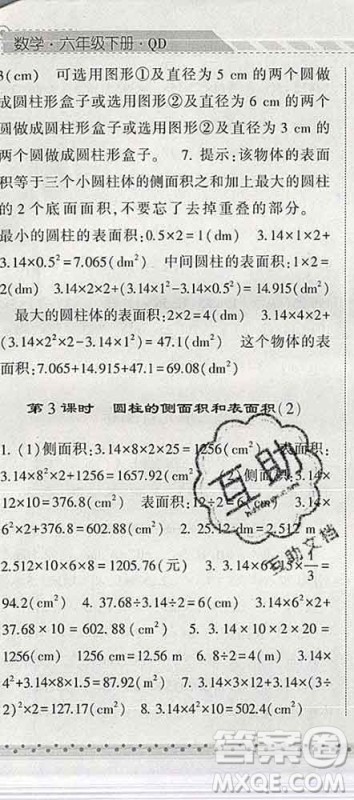 数学·六年级下册·QD
3(cm) 可选用图形①及直径为 5 cm 的两个圆做
成圆柱形盒子或选用图形②及直径为 6 cm 的两个
圆做成圆柱形盒子或选用图形②及直径为 3 cm 的
两个圆做成圆柱形盒子。 7. 提示:该物体的表面
积等于三个小圆柱体的侧面积之和加上最大的圆柱
的 2 个底面面积,不要忘了去掉重叠的部分。
最小的圆柱的表面积:0.5×2=1(dm) 3.14×1×2+
3.14×0.5²=7.065(dm²) 中间圆柱的表面积:1×2=
2(dm) 3.14×2×2+(3.14×1²-3.14×0.5²)=14.915(dm²)
最大的圆柱体的表面积:2×2=4(dm) 3.14×4×2+
(3.14×2²×2-3.14×1²)=47.1(dm²) 这个物体的表
面积:7.065+14.915+47.1=69.08(dm²)
第 3 课时 圆柱的侧面积和表面积(2)
1. (1)侧面积:3.14×8×2×25=1256(cm²) 表面积:
3.14×8²×2+1256=1657.92(cm²) (2)侧面积:3.14×
12×10=376.8(cm²) 表面积:12÷2=6(cm) 3.14×
6²×2+376.8=602.88(cm²) 2. 25.12 dm=2.512 m
2.512×10×6×8=1205.76(元) 3. 3.14×6×15×1/3=
94.2(cm²) 4. 37.68÷3.14÷2=6(cm) 3.14×6²×2+
37.68×10=602.88(cm²) 5. 3.14×10×2×20=
1256(cm) 1256 cm=12.56 m 6. 8÷2=4(cm) 3.14×
4²+3.14×8×10=301.44(cm²) 7. 3.14×3×12+3.14×(3÷
2)²×2=127.17(cm²) 8. 3.14×4²×10=502.4(cm²)
互助
互助文档
答案圈
MXQE.COM